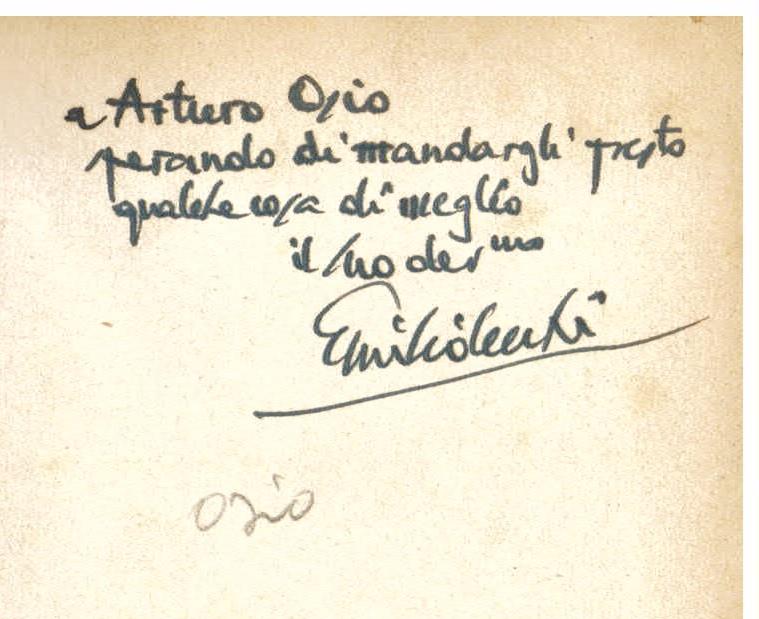 a Arturo Osio
sperando di mandargli presto
qualche cosa di meglio
il suo dev mo
Emilio Cecchi
Osio